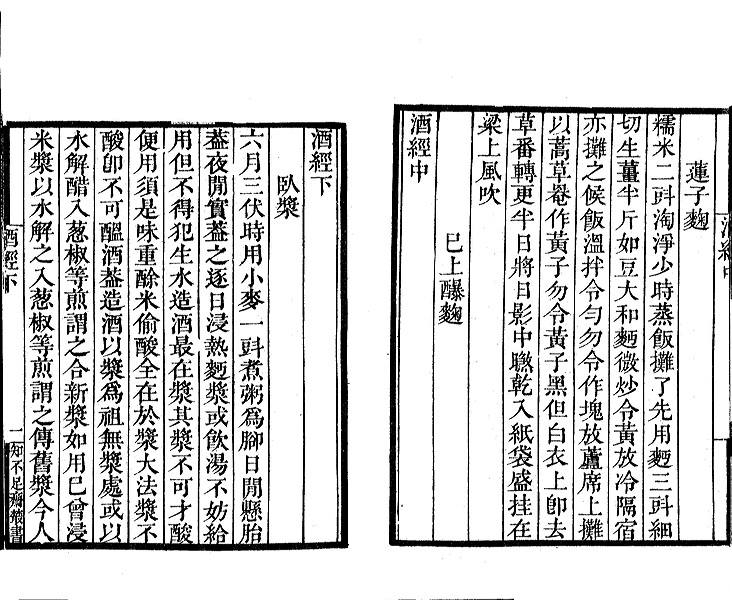 酒經中
蓮子麴
糯米二㪷淘淨少時蒸飯攤了先用麵三㪷細
切生薑半斤如豆大和麵微炒令黃放冷隔宿
亦攤之候飯溫拌令勻勿令作塊放蘆席上攤
以蒿草罨作黃子勿令黃子黑但白衣上卽去
草番轉更半日將日影中曬乾入紙袋盛挂在
梁上風吹
已上醸麴
酒經中
酒經下
臥漿
六月三伏時用小麥一㪷煮粥爲腳日閒懸胎
葢夜閒實葢之逐日浸熱麵漿或飮湯不妨給
用但不得犯生水造酒最在漿其漿不可才酸
便用須是味重酴米偷酸全在於漿大法漿不
酸卽不可醞酒葢造酒以漿爲祖無漿處或以
水解醋入葱椒等煎謂之合新漿如用已曾浸
米漿以水解之入葱椒等煎謂之傳舊漿今人
酒經下
一
知不足齋叢書